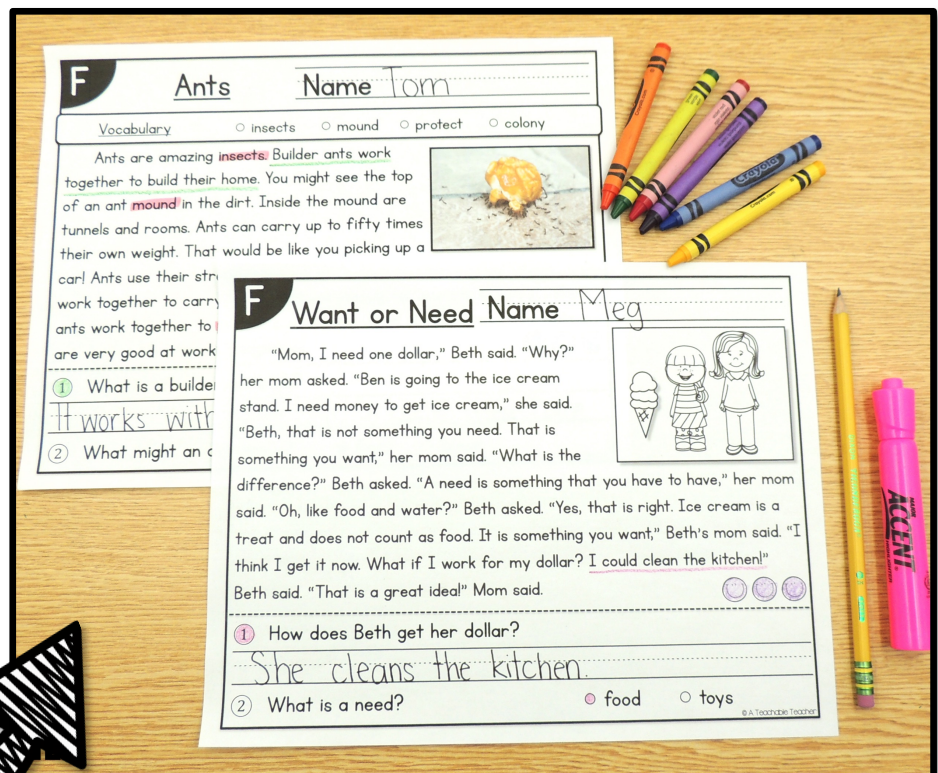 F
Ants
Name Tom
Vocabulary insects mound protect colony
Ants are amazing insects. Builder ants work
together to build their home. You might see the top
of an ant mound in the dirt. Inside the mound are
tunnels and rooms. Ants can carry up to fifty times
their own weight. That would be like you picking up a
car! Ants use their str
work together to carry
ants work together to
are very good at work
1 What is a builde
It works with
2 What might an
F
Want or Need Name Meg
“Mom, I need one dollar,” Beth said. “Why?”
her mom asked. “Ben is going to the ice cream
stand. I need money to get ice cream,” she said.
“Beth, that is not something you need. That is
something you want,” her mom said. “What is the
difference?” Beth asked. “A need is something that you have to have,” her mom
said. “Oh, like food and water?” Beth asked. “Yes, that is right. Ice cream is a
treat and does not count as food. It is something you want,” Beth’s mom said. “I
think I get it now. What if I work for my dollar? I could clean the kitchen!”
Beth said. “That is a great idea!” Mom said.
1 How does Beth get her dollar?
She cleans the kitchen.
2 What is a need? food toys
© A Teachable Teacher
Crayola
ACCENT